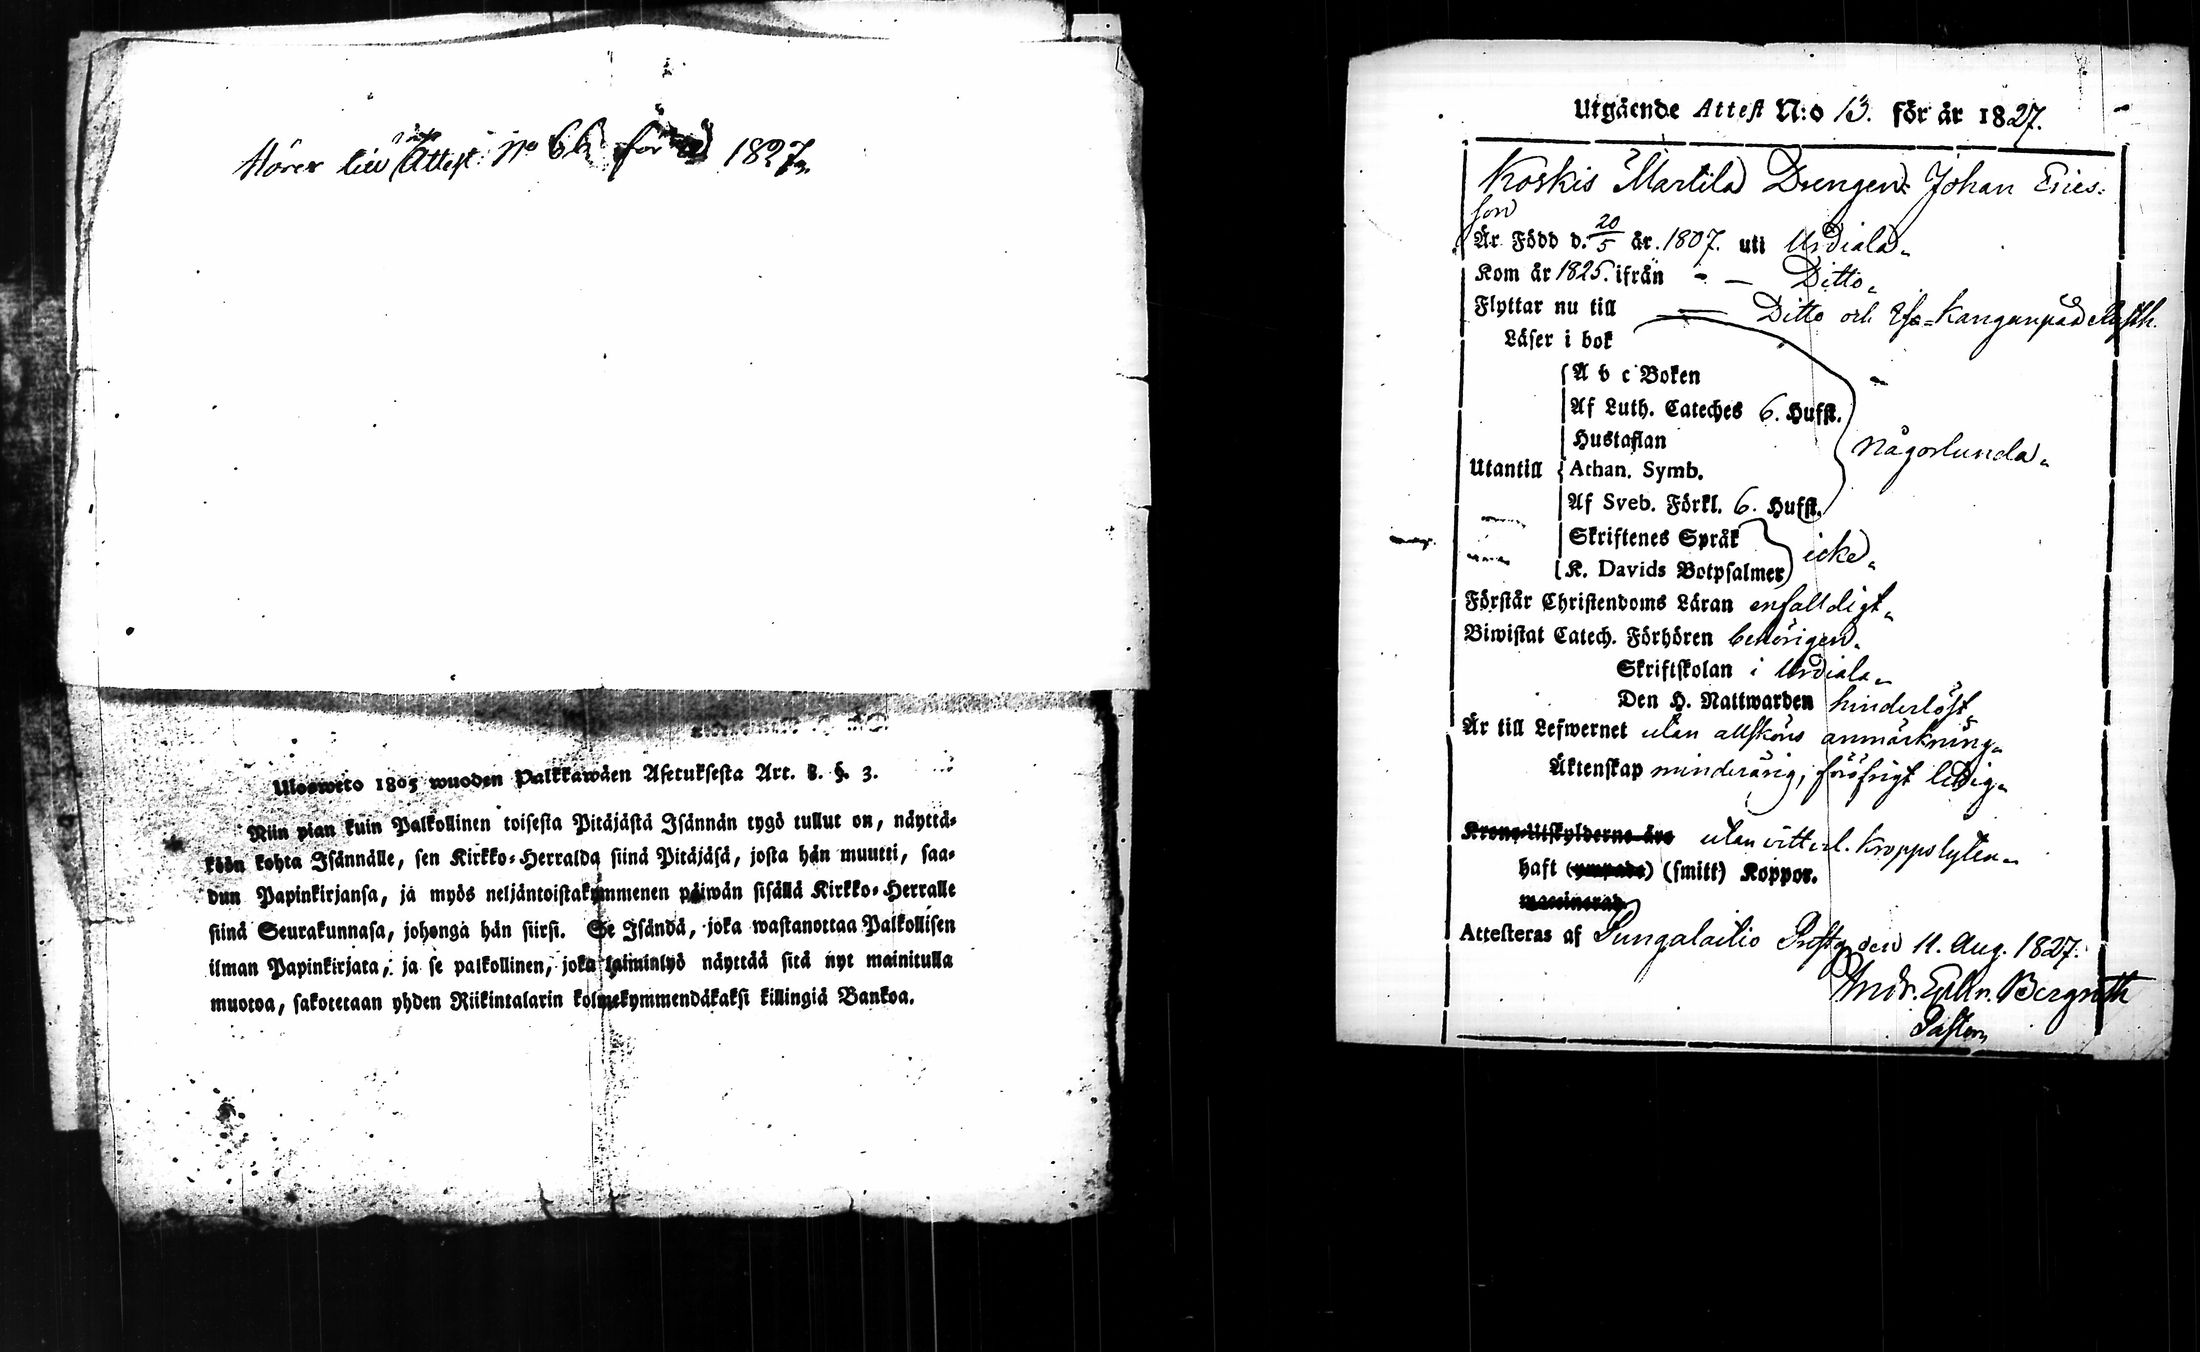 Hörer till Attest No 66 för 1827.
Ulosweto 1805 wuoden Palkkawäen Asetuksesta Art. 8. §. 3.
Niin pian kuin Palkollinen toisesta Pitäjästä Isännän tygö tullut on, näyttä-
köön kohta Isännälle, sen Kirkko-Herralda siinä Pitäjäsä, josta hän muutti, saa-
dun Papinkirjansa, ja myös neljäntoistakymmenen päiwän sisällä Kirkko-Herralle
siinä Seurakunnasa, johonga hän siirsi. Se Isändä, joka wastanottaa Palkollisen
ilman Papinkirjata, ja se palkollinen, joka laiminlyö näyttää sitä nyt mainitulla
muotoa, sakotetaan yhden Riikintalarin kolmekymmendäkaksi killingiä Bankoa.
Utgående Attest N:o 13. för år 1827.
Koskis Martila Drengen Johan Erics-
son
Är Född d. 20/5 år 1807. uti Urdiala
Kom år 1825. ifrån - — Ditto
Flyttar nu till — Ditto och
Läser i bok
A b c Boken
Af Luth. Cateches 6. Hufst.
Hustaflan
någorlunda
Utantill Athan. Symb.
Af Sveb. Förkl. 6. Hufst.
Skriftenes Språk
icke
K. Davids Botpsalmer
Förstår Christendoms Läran enfalldigt
Biwistat Catech. Förhören behörigen
Skriftskolan i Urdiala
Den H. Nattwarden hinderlöst
Är till Lefwernet utan allsköns anmärkning
Äktenskap minderårig, föröfrigt ledig
Krono-Utskylderne äro utan vitterl. kroppslyten
haft (ympade) (smitt) Koppor.
vaccinerad
Attesteras af Sungalaitio Prostg den 11. Aug. 1827.
Bergroth
Pastor